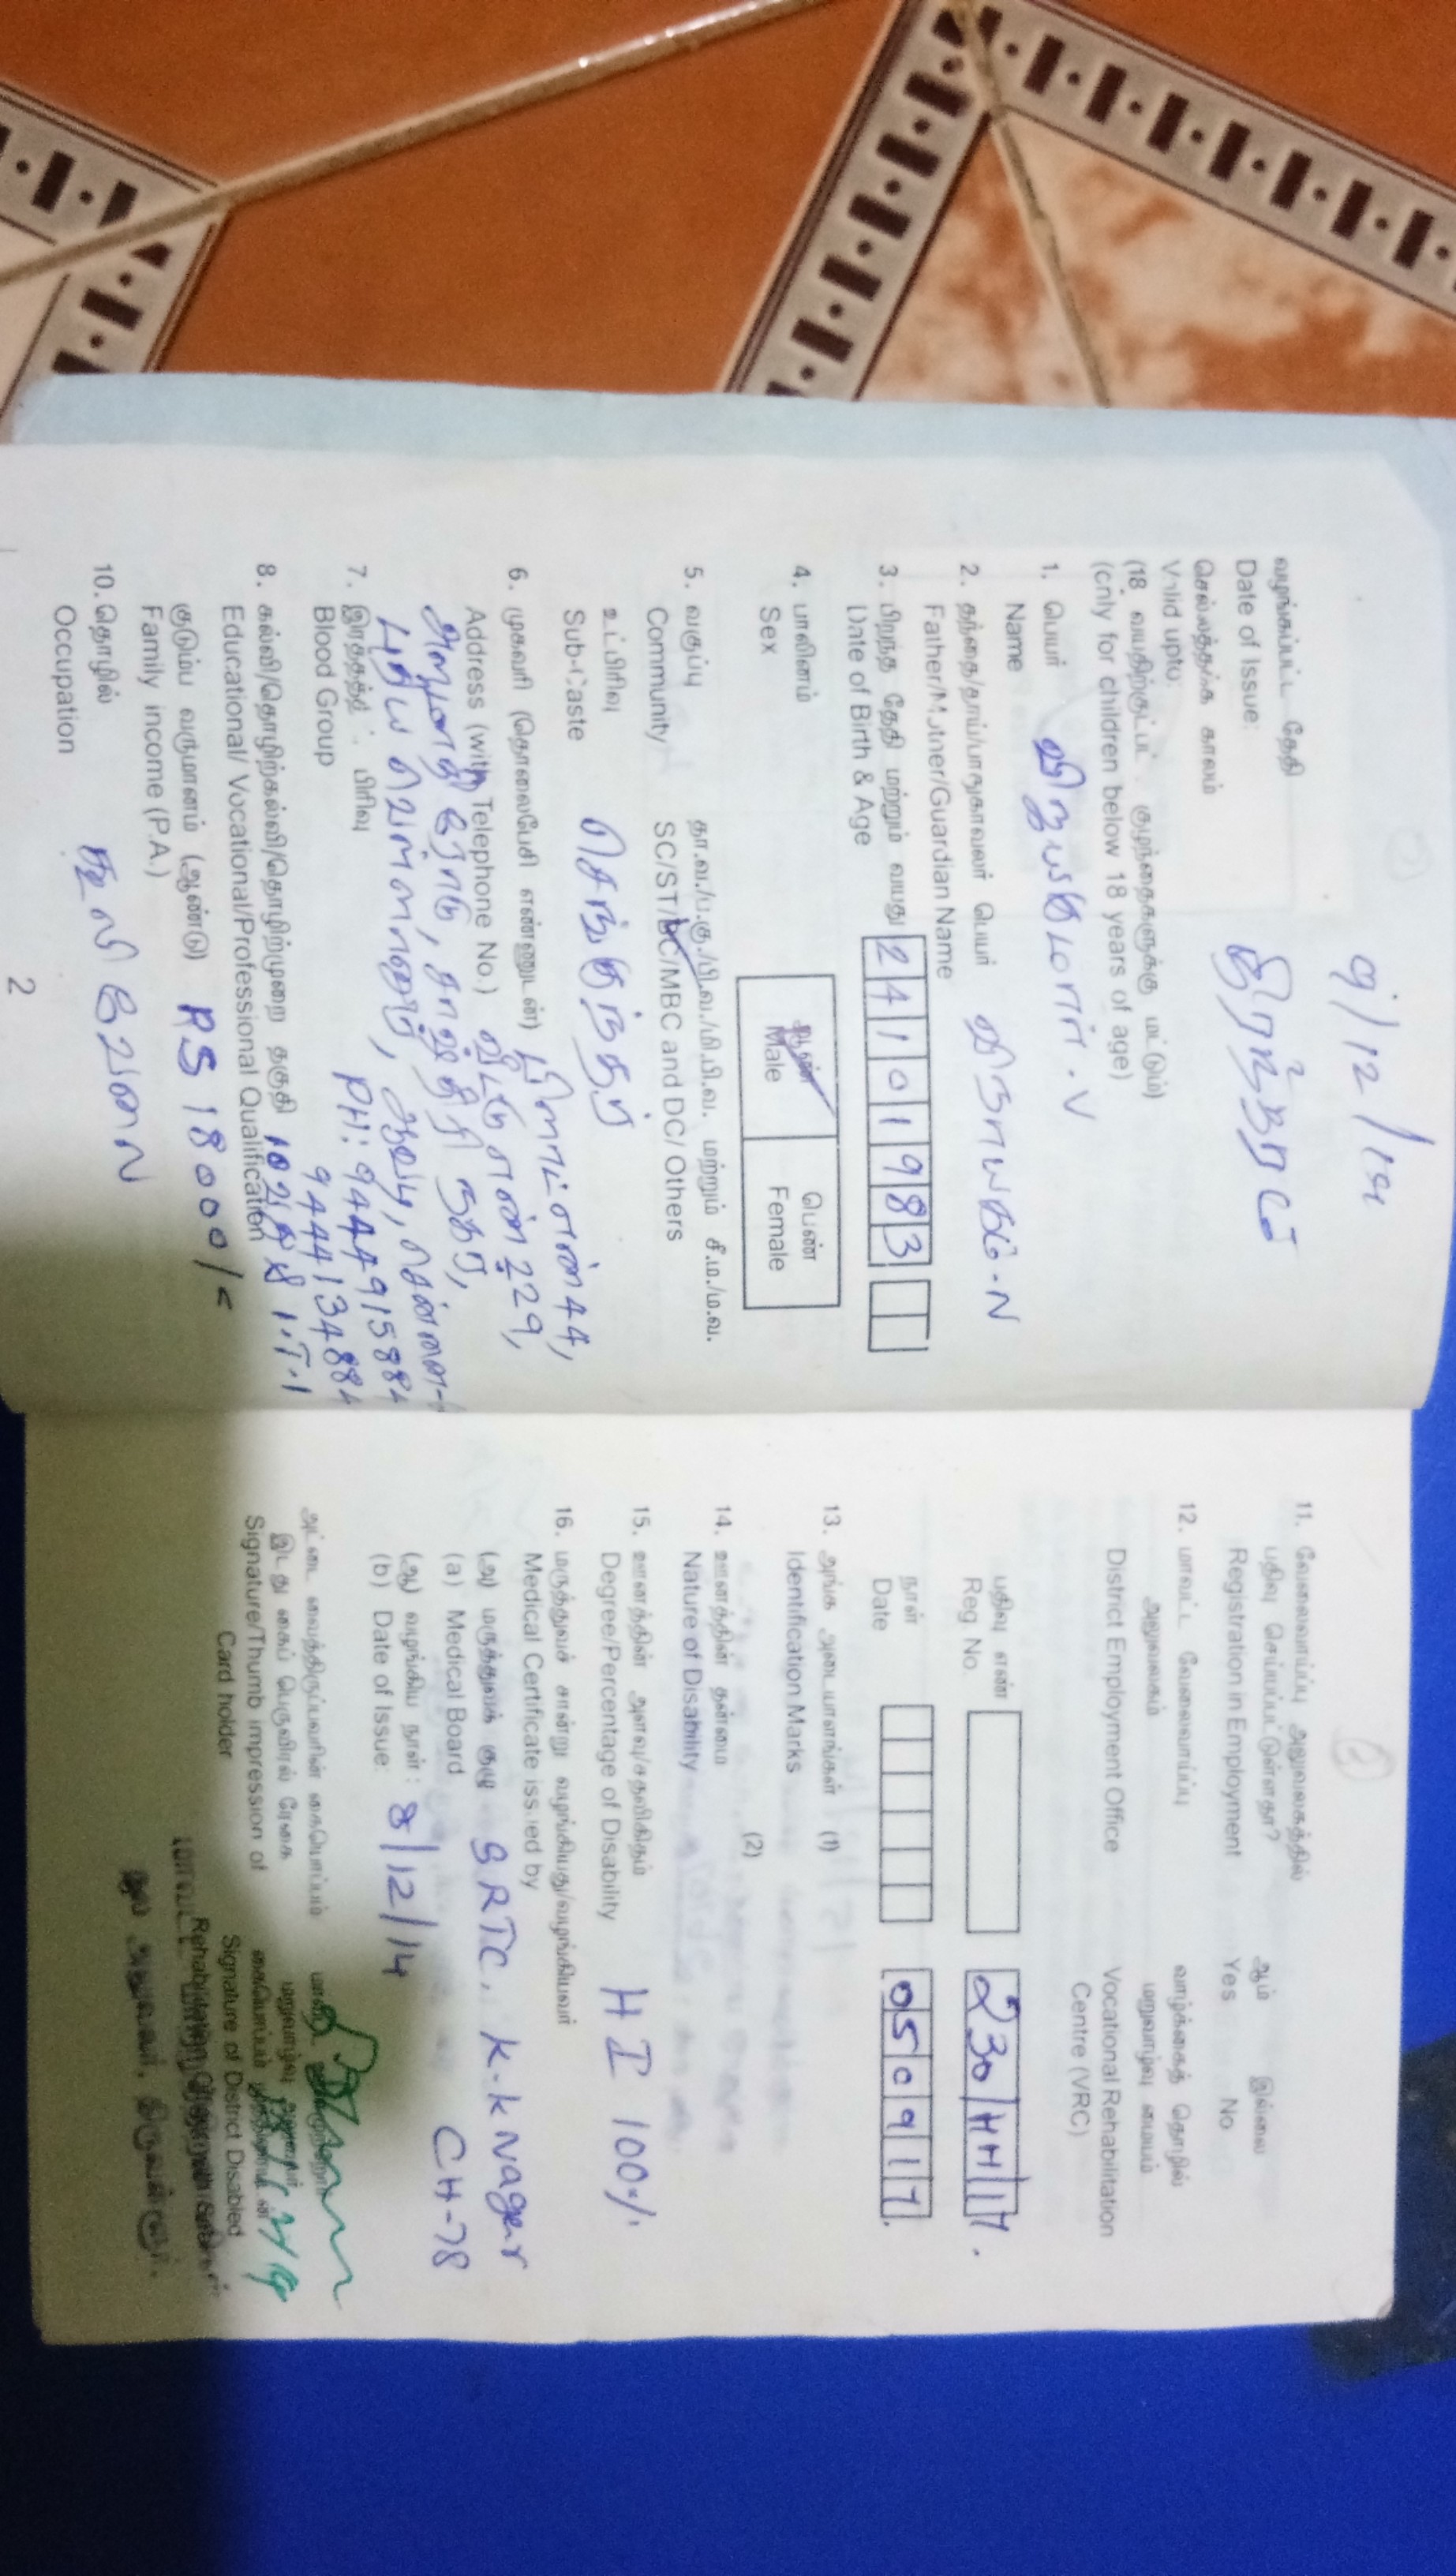 வழங்கப்பட்ட தேதி
Date of Issue:
9/12/14
செல்லத்தக்க காலம்
Valid upto:
நிரந்தரம்
(18 வயதிற்குட்பட்ட குழந்தைகளுக்கு மட்டும்)
(only for children below 18 years of age)
1. பெயர்
Name
விஜயகுமார் . V
2. தந்தை/தாய்/பாதுகாவலர் பெயர்
Father/Mother/Guardian Name
விநாயகம் - N
3. பிறந்த தேதி மற்றும் வயது
Date of Birth & Age
2 4 1 0 1 9 8 3
4. பாலினம் ஆண் பெண்
Sex Male Female
5. வகுப்பு தா.வ./ப.கு./பி.வ./மி.பி.வ. மற்றும் சீ.ம./ம.வ.
Community SC/ST/BC/MBC and DC/ Others
உட்பிரிவு
Sub-Caste
செங்குந்தர்
6. முகவரி (தொலைபேசி எண்ணுடன்) பிளாட் எண் 44,
Address (with Telephone No.) வீட்டு எண் 229,
புதிய வெள்ளானூர், ஆவடி, சென்னை-
7. இரத்தத்தட்ட பிரிவு PH: 9444915884
Blood Group 9444134884
8. கல்வி/தொழிற்கல்வி/தொழிற்முறை தகுதி
Educational/ Vocational/Professional Qualification I.T.I
குடும்ப வருமானம் (ஆண்டு) RS 18000/-
Family income (P.A.)
10. தொழில்
Occupation
கூலி வேலை
2
11. வேலைவாய்ப்பு அலுவலகத்தில் ஆம் இல்லை
பதிவு செய்யப்பட்டுள்ளதா?
Registration in Employment Yes No
12. மாவட்ட வேலைவாய்ப்பு வாழ்க்கைத் தொழில்
அலுவலகம் மறுவாழ்வு மையம்
District Employment Office Vocational Rehabilitation
Centre (VRC)
பதிவு எண்
Reg No.
நாள்
Date
0 5 0 9 1 7
13. அங்க அடையாளங்கள் (1)
Identification Marks
(2)
14. ஊனத்தின் தன்மை
Nature of Disability
15. ஊனத்தின் அளவு/சதவிகிதம்
Degree/Percentage of Disability
HI 100%
16. மருத்துவச் சான்று வழங்கியது/வழங்கியவர்
Medical Certificate issued by
(அ) மருத்துவக் குழு SRTC, K.K Nager
(a) Medical Board CH-78
(ஆ) வழங்கிய நாள் : 8/12/14
(b) Date of Issue:
அட்டை வைத்திருப்பவரின் கையொப்பம்
இடது கைப் பெருவிரல் ரேகை
Signature/Thumb impression of
Card holder
Signature of District Disabled